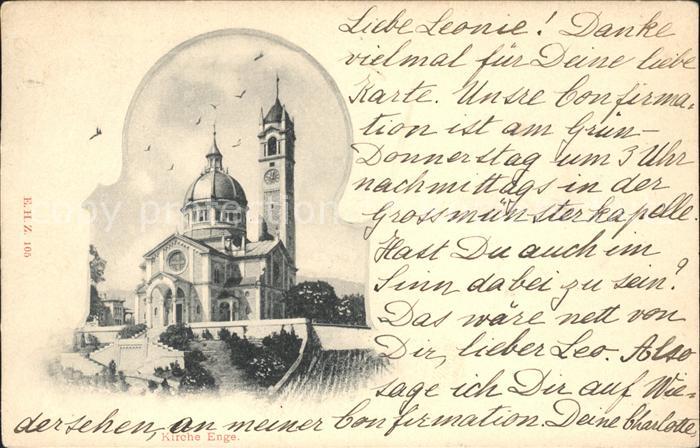 Liebe Leonie! Danke
vielmal für Deine liebe
Karte. Unsre Confirma-
tion ist am Grün-
Donnerstag um 3 Uhr
nachmittags in der
Grossmünsterkapelle
Hast Du auch im
Sinn dabei zu sein?
Das wäre nett von
Dir, lieber Leo. Also
sage ich Dir auf Wie-
dersehen, an meiner Confirmation. Deine Charlotte.
Kirche Enge.
E. H. Z. 105
copyright protection